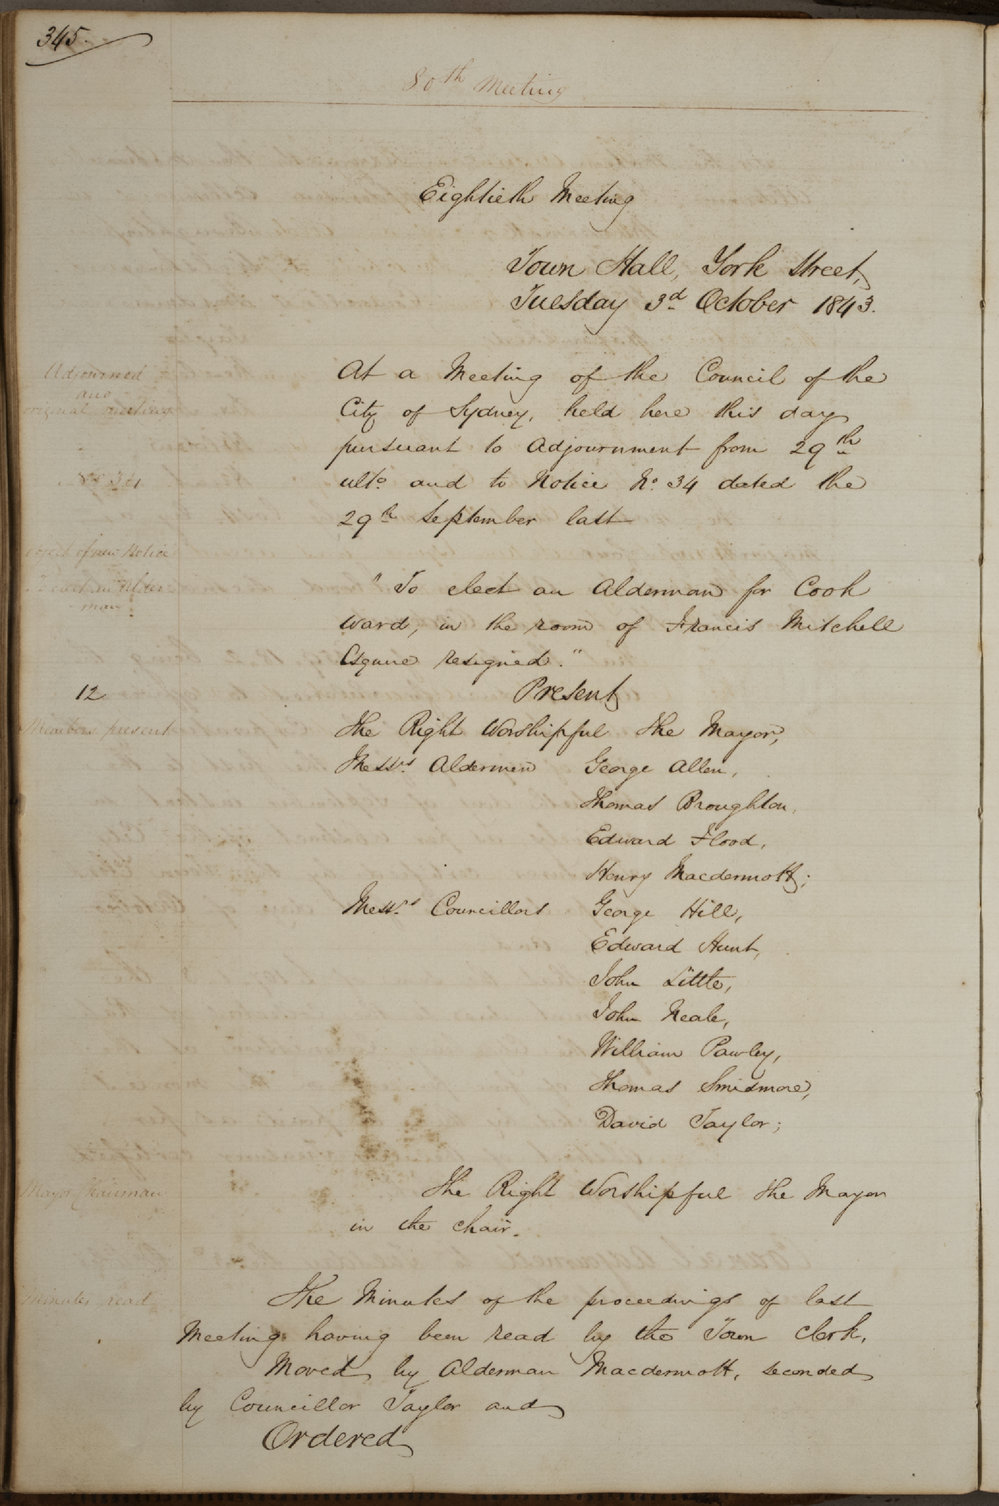 345.
80th Meeting
Eightieth Meeting
Town Hall, York Street,
Tuesday 3d October 1843.
Adjourned
and
original meeting
No 34
At a Meeting of the Council of the
City of Sydney, held here this day
pursuant to Adjournment from 29th
ulto and to Notice No. 34 dated the
29th September last
object of new Notice
To elect an Alder
-man
"To elect an Alderman for Cook
Ward, in the room of Francis Mitchell
Esquire resigned."
Present
12
Members present
The Right Worshipful the Mayor,
Messrs. Aldermen George Allen,
Thomas Broughton,
Edward Flood,
Henry Macdermott;
Messrs. Councillors George Hill,
Edward Hunt,
John Little,
John Neale,
William Pawley,
Thomas Smidmore,
David Taylor;
Mayor Chairman
The Right Worshipful the Mayor
in the chair.
Minutes read
The Minutes of the proceedings of last
Meeting having been read by the Town Clerk,
Moved by Alderman Macdermott, seconded
by Councillor Taylor and
Ordered